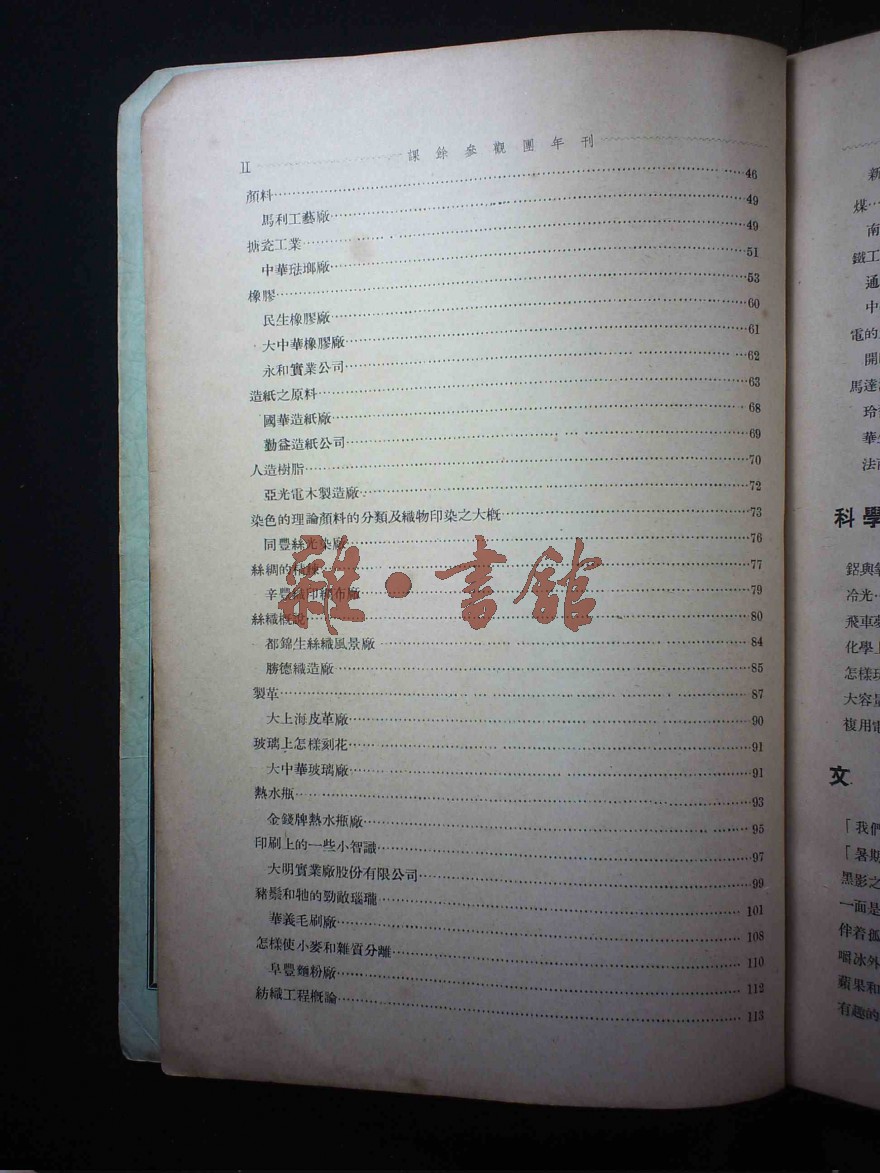 II 課餘參觀團年刊
顏料 46
馬利工藝廠 49
搪瓷工業 49
中華琺瑯廠 51
橡膠 53
民生橡膠廠 60
大中華橡膠廠 61
永和實業公司 62
造紙之原料 63
國華造紙廠 68
勤益造紙公司 69
人造樹脂 70
亞光電木製造廠 72
染色的理論顏料的分類及織物印染之大概 73
同豐絲光染廠 76
絲綢的 77
辛豐織印綢布廠 79
絲織概說 80
都錦生絲織風景廠 84
勝德織造廠 85
製革 87
大上海皮革廠 90
玻璃上怎樣刻花 91
大中華玻璃廠 91
熱水瓶 93
金錢牌熱水瓶廠 95
印刷上的一些小智識 97
大明實業廠股份有限公司 99
豬鬃和牠的勁敵瑙瓏 101
華義毛刷廠 108
怎樣使小麥和雜質分離 110
阜豐麵粉廠 112
紡織工程概論 113
雜·書館
新
煤
南
鐵工
通
中
電的
開
馬達
玲
華
法
科學
鋁與
冷光
飛車
化學
怎樣
大容
複用電
文
「我們
「暑期
黑影之
一面是
伴着孤
嚼冰外
蘋果和
有趣的